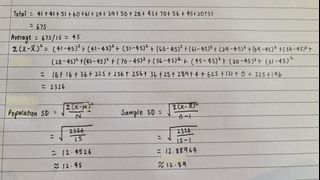 Total = 41+41+51+60+61+29+39+50+28+43+70+56+45+30+31
= 675
Average = 675/15 = 45
Σ(x-x̄)² = (41-45)²+(41-45)²+(51-45)²+(60-45)²+(61-45)²+(29-45)²+(39-45)²+(50-45)²+
(28-45)²+(43-45)²+(70-45)²+(56-45)²+(45-45)²+(30-45)²+(31-45)²
= 16+16+36+225+256+256+36+25+289+4+625+121+0+225+196
= 2326
Population SD = √Σ(x-μ)²/N Sample SD = √Σ(x-x̄)²/n-1
= √2326/15 = √2326/15-1
= 12.4526 = 12.88964
≈ 12.45 ≈ 12.89